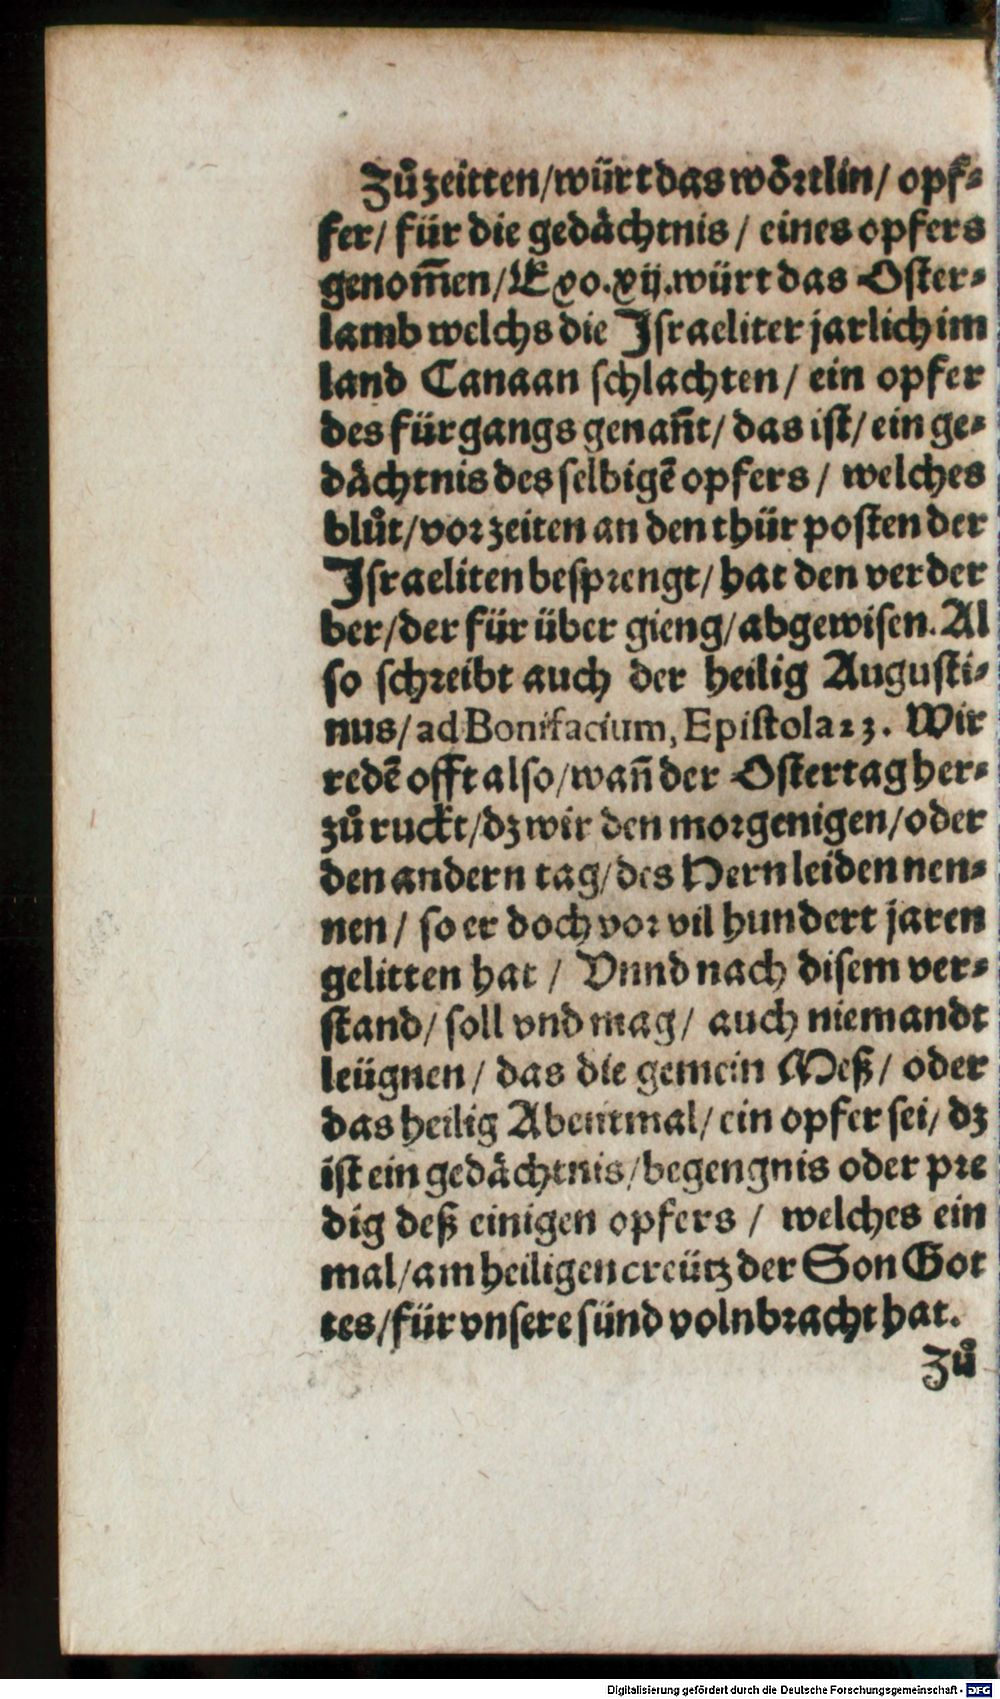 Zů zeitten/ würt das wörtlin/ opf-
fer/ für die gedächtnis / eines opfers
genom̄en/ Exo.xij.würt das Oster-
lamb welchs die Israeliter jarlich im
land Canaan schlachten / ein opfer
des fürgangs genañt/ das ist/ ein ge-
dächtnis des selbigē opfers / welches
blůt/ vor zeiten an den thür posten der
Israeliten besprengt/ hat den verder
ber/ der für über gieng/ abgewisen. Al
so schreibt auch der heilig Augusti-
nus/ ad Bonifacium, Epistola 23. Wir
redē offt also/ wañ der Ostertag her-
zů ruckt/ dz wir den morgenigen/ oder
den andern tag/ des Hern leiden nen-
nen / so er doch vor vil hundert jaren
gelitten hat / Vnnd nach disem ver-
stand/ soll vnd mag/ auch niemandt
leügnen/ das die gemein Meß/ oder
das heilig Abentmal/ ein opfer sei/ dz
ist ein gedächtnis/ begengnis oder pre
dig deß einigen opfers / welches ein
mal/ am heiligen creütz der Son Got
tes/ für vnsere sünd volnbracht hat.
Zů
Digitalisierung gefördert durch die Deutsche Forschungsgemeinschaft - DFG